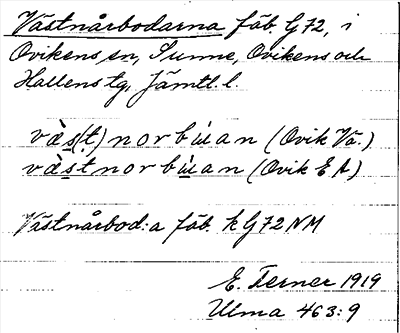 Västnårbodarna fäb. G 72, i
Ovikens sn, Sunne, Ovikens och
Hallens tg, Jämtl. l.
vàs̱(t)norbúan (Ovik Vä.)
vàs̱tnorbúan (Ovik E A)
Västnårbod:a fäb. k G 72 NM
E. Ferner 1919
Ulma 463:9